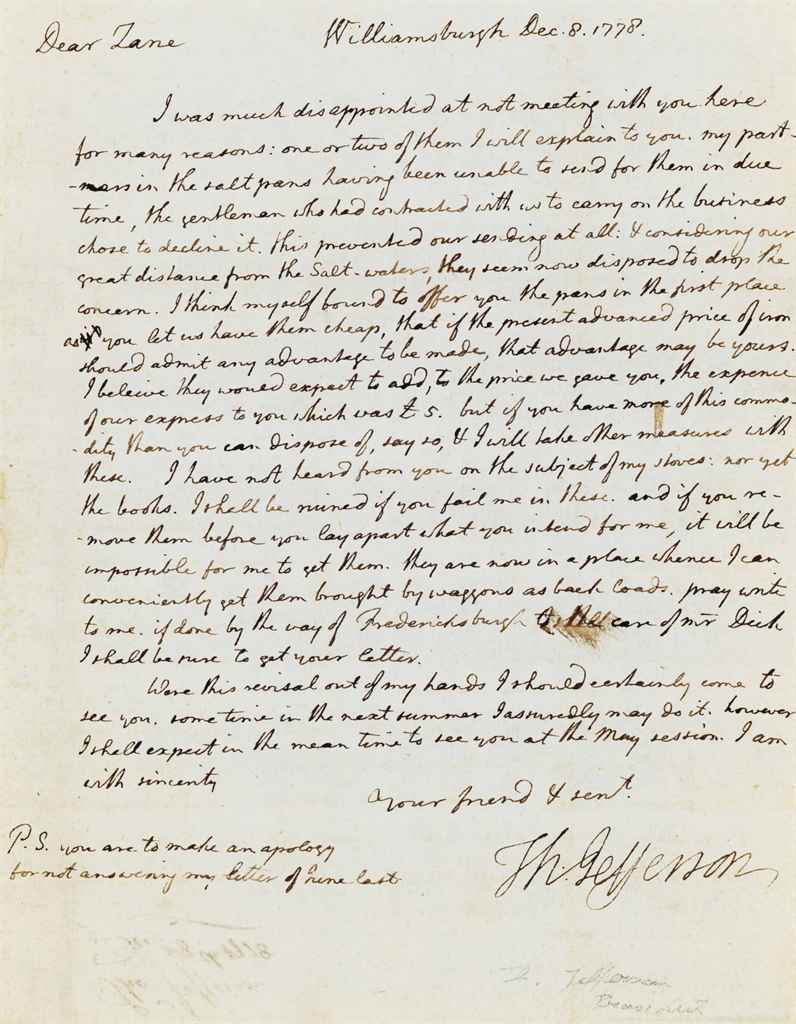 Dear Zane
Williamsburgh Dec. 8. 1778.
I was much disappointed at not meeting with you here
for many reasons: one or two of them I will explain to you. my part-
-ners in the salt pans having been unable to send for them in due
time, the gentleman who had contracted with us to carry on the business
chose to decline it. this prevented our sending at all: & considering our
great distance from the Salt-waters, they seem now disposed to drop the
concern. I think myself bound to offer you the pans in the first place
as you let us have them cheap, that if the present advanced price of iron
should admit any advantage to be made, that advantage may be yours.
I beleive they would expect to add, to the price we gave you, the expence
of our express to you which was £ 5. but if you have more of this commo-
-dity than you can dispose of, say so, & I will take other measures with
these. I have not heard from you on the subject of my stoves: nor yet
the books. I shall be ruined if you fail me in these. and if you re-
-move them before you lay apart what you intend for me, it will be
impossible for me to get them. they are now in a place whence I can
conveniently get them brought by waggons as back loads. pray write
to me. if done by the way of Fredericksburgh to the care of mr Dick
I shall be sure to get your letter.
Were this revisal out of my hands I should certainly come to
see you. some time in the next summer I assuredly may do it. however
I shall expect in the mean time to see you at the May session. I am
with sincerity
Your friend & servt.
Th: Jefferson
P.S. you are to make an apology
for not answering my letter of June last
Jefferson